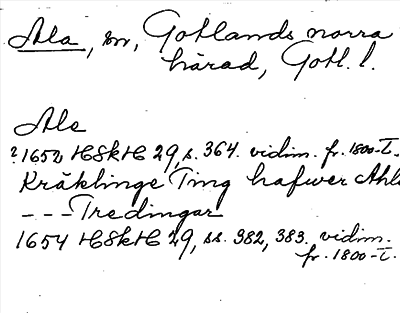 Ala, sn, Gotlands norra
härad, Gotl. l.
Ale
? 1652 HSkH 29, s. 364. vidim. fr. 1800-t.
Kräklinge Ting hafwer Ahl
--- Tredingar
1654 HSkH 29, ss. 382, 383. vidim.
fr. 1800-t.